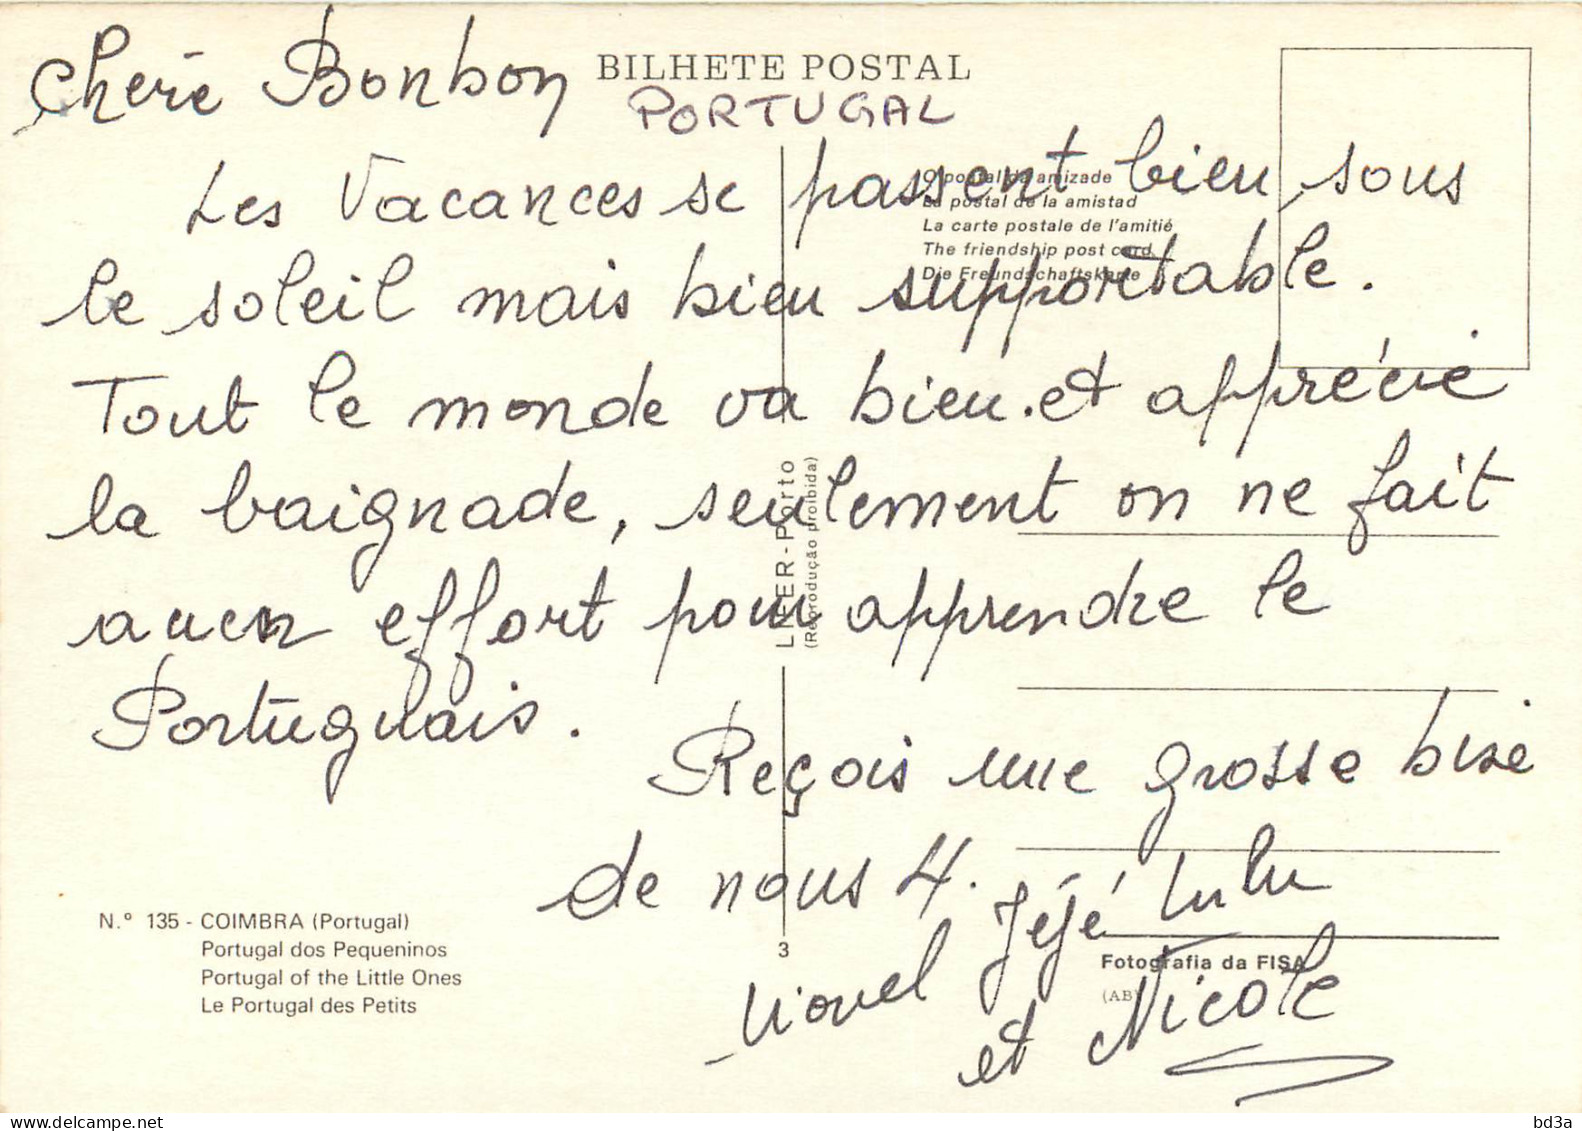 Chère Bonbon
BILHETE POSTAL
PORTUGAL
Les Vacances se passent bien, sous
le soleil mais bien supportable.
Tout le monde va bien. et apprécie
la baignade, seulement on ne fait
aucun effort pour apprendre le
Portuguais.
Reçois une grosse bise
de nous 4.
Lionel Jéjé Lulu
et Nicole
O postal da amizade
La postal de la amistad
La carte postale de l'amitié
The friendship post card
Die Freundschaftskarte
LIFER - Porto
(Reprodução proibida)
N.º 135 - COIMBRA (Portugal)
Portugal dos Pequeninos
Portugal of the Little Ones
Le Portugal des Petits
3
Fotografia da FISA
(AB)
bd3a